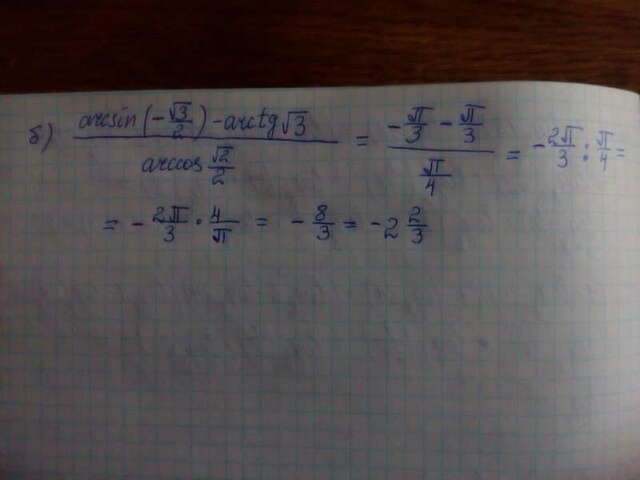 б) (arcsin(-√3/2) - arctg√3)/(arccos √2/2) = (-π/3 - π/3)/(π/4) = -2π/3 : π/4 =
= -2π/3 · 4/π = -8/3 = -2 2/3